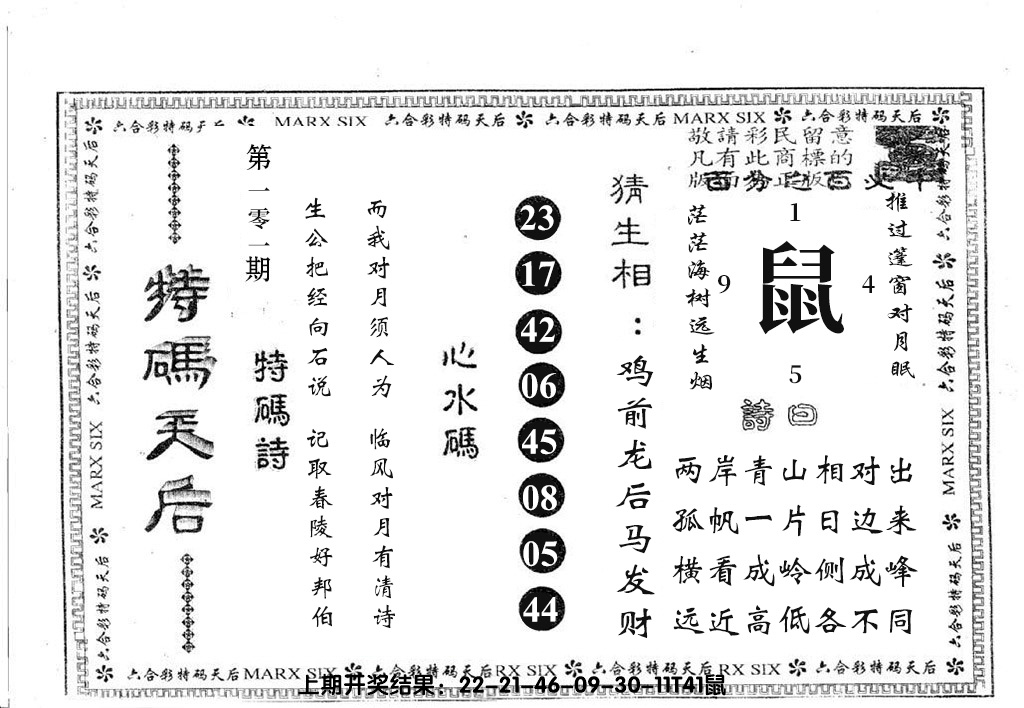 六合彩特码天后 MARX SIX 六合彩特码天后 六合彩特码天后 MARX SIX 六合彩特码天后
敬請彩民留意
凡有此商標的
版面为正版
推过蓬窗对月眠
茫茫海树远生烟
1
9
鼠
4
5
詩曰
两岸青山相对出
孤帆一片日边来
横看成岭侧成峰
远近高低各不同
猜生相：鸡前龙后马发财
23
17
42
06
45
08
05
44
心水碼
而我对月须人为 临风对月有清诗
生公把经向石说 记取春陵好邦伯
特碼詩
第一零一期
特碼天后
六合彩特码天后 六合彩特码天后 MARX SIX 六合彩特码天后
六合彩特码天后 六合彩特码天后 MARX SIX 六合彩特码天后
六合彩特码天后 MARX SIX 六合彩特码天后 RX SIX 六合彩特码天后 RX SIX 六合彩特码天后
上期开奖结果：22-21-46-09-30-11T41鼠